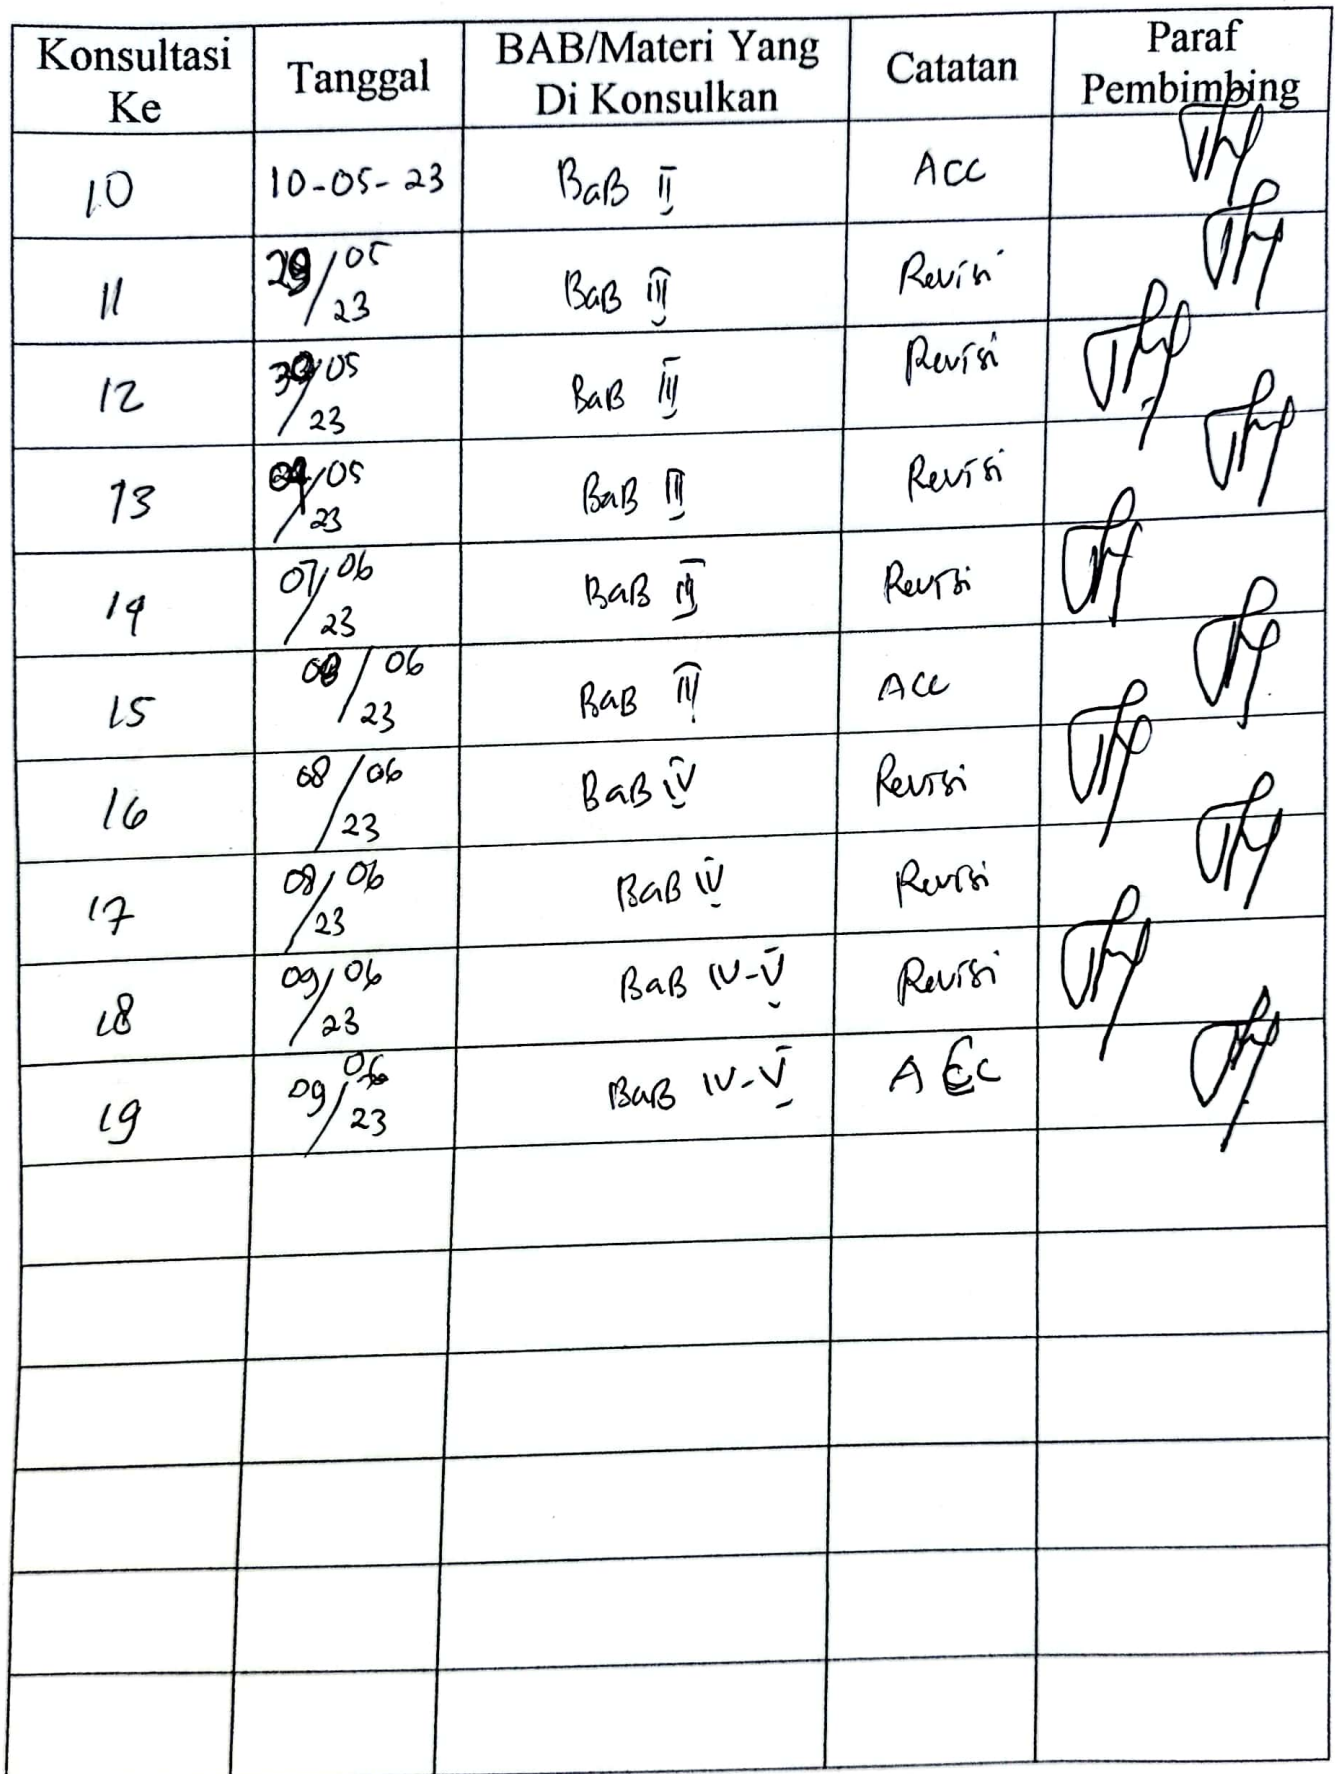 Konsultasi Ke Tanggal BAB/Materi Yang Di Konsulkan Catatan Paraf Pembimbing
10 10-05-23 BaB II ACC
11 29/05/23 BaB III Revisi
12 30/05/23 BaB III Revisi
13 /05/23 BaB III Revisi
14 07/06/23 BaB III Revisi
15 08/06/23 BaB III ACC
16 08/06/23 BaB IV Revisi
17 08/06/23 BaB IV Revisi
18 09/06/23 BaB IV-V Revisi
19 09/06/23 BaB IV-V ACC